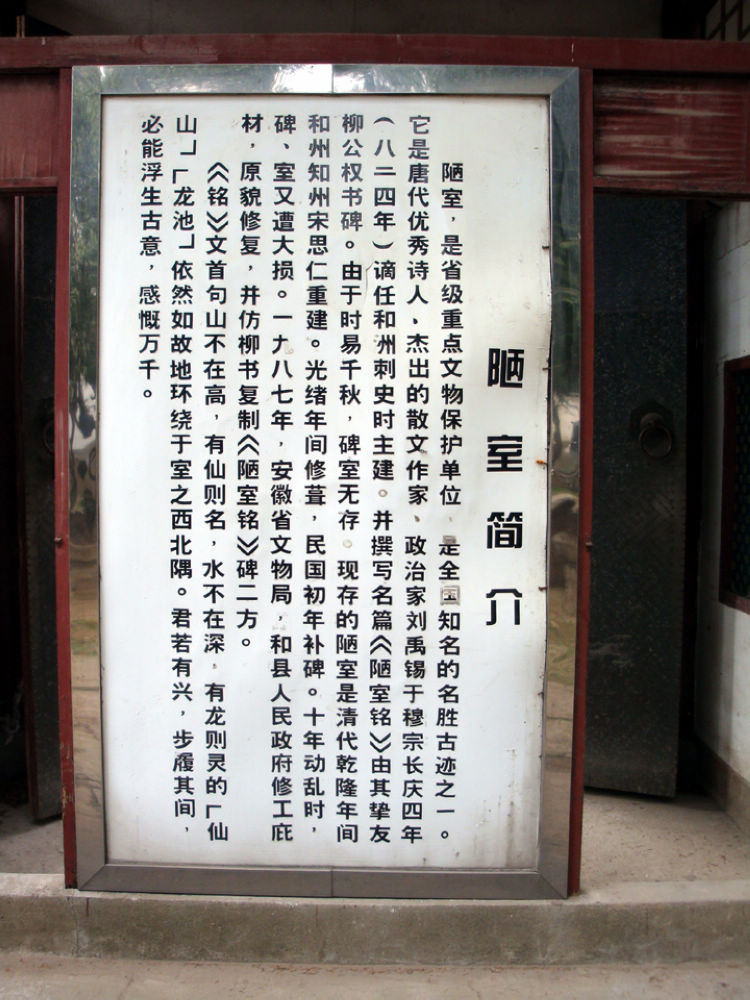 陋室简介
陋室，是省级重点文物保护单位，是全国知名的名胜古迹之一。
它是唐代优秀诗人、杰出的散文作家、政治家刘禹锡于穆宗长庆四年
（八二四年）谪任和州刺史时主建。并撰写名篇《陋室铭》由其挚友
柳公权书碑。由于时易千秋，碑室无存。现存的陋室是清代乾隆年间
和州知州宋思仁重建。光绪年间修葺，民国初年补碑。十年动乱时，
碑、室又遭大损。一九八七年，安徽省文物局，和县人民政府修工庇
材，原貌修复，并仿柳书复制《陋室铭》碑二方。
《铭》文首句山不在高，有仙则名，水不在深，有龙则灵的「仙
山」「龙池」依然如故地环绕于室之西北隅。君若有兴，步履其间，
必能浮生古意，感慨万千。